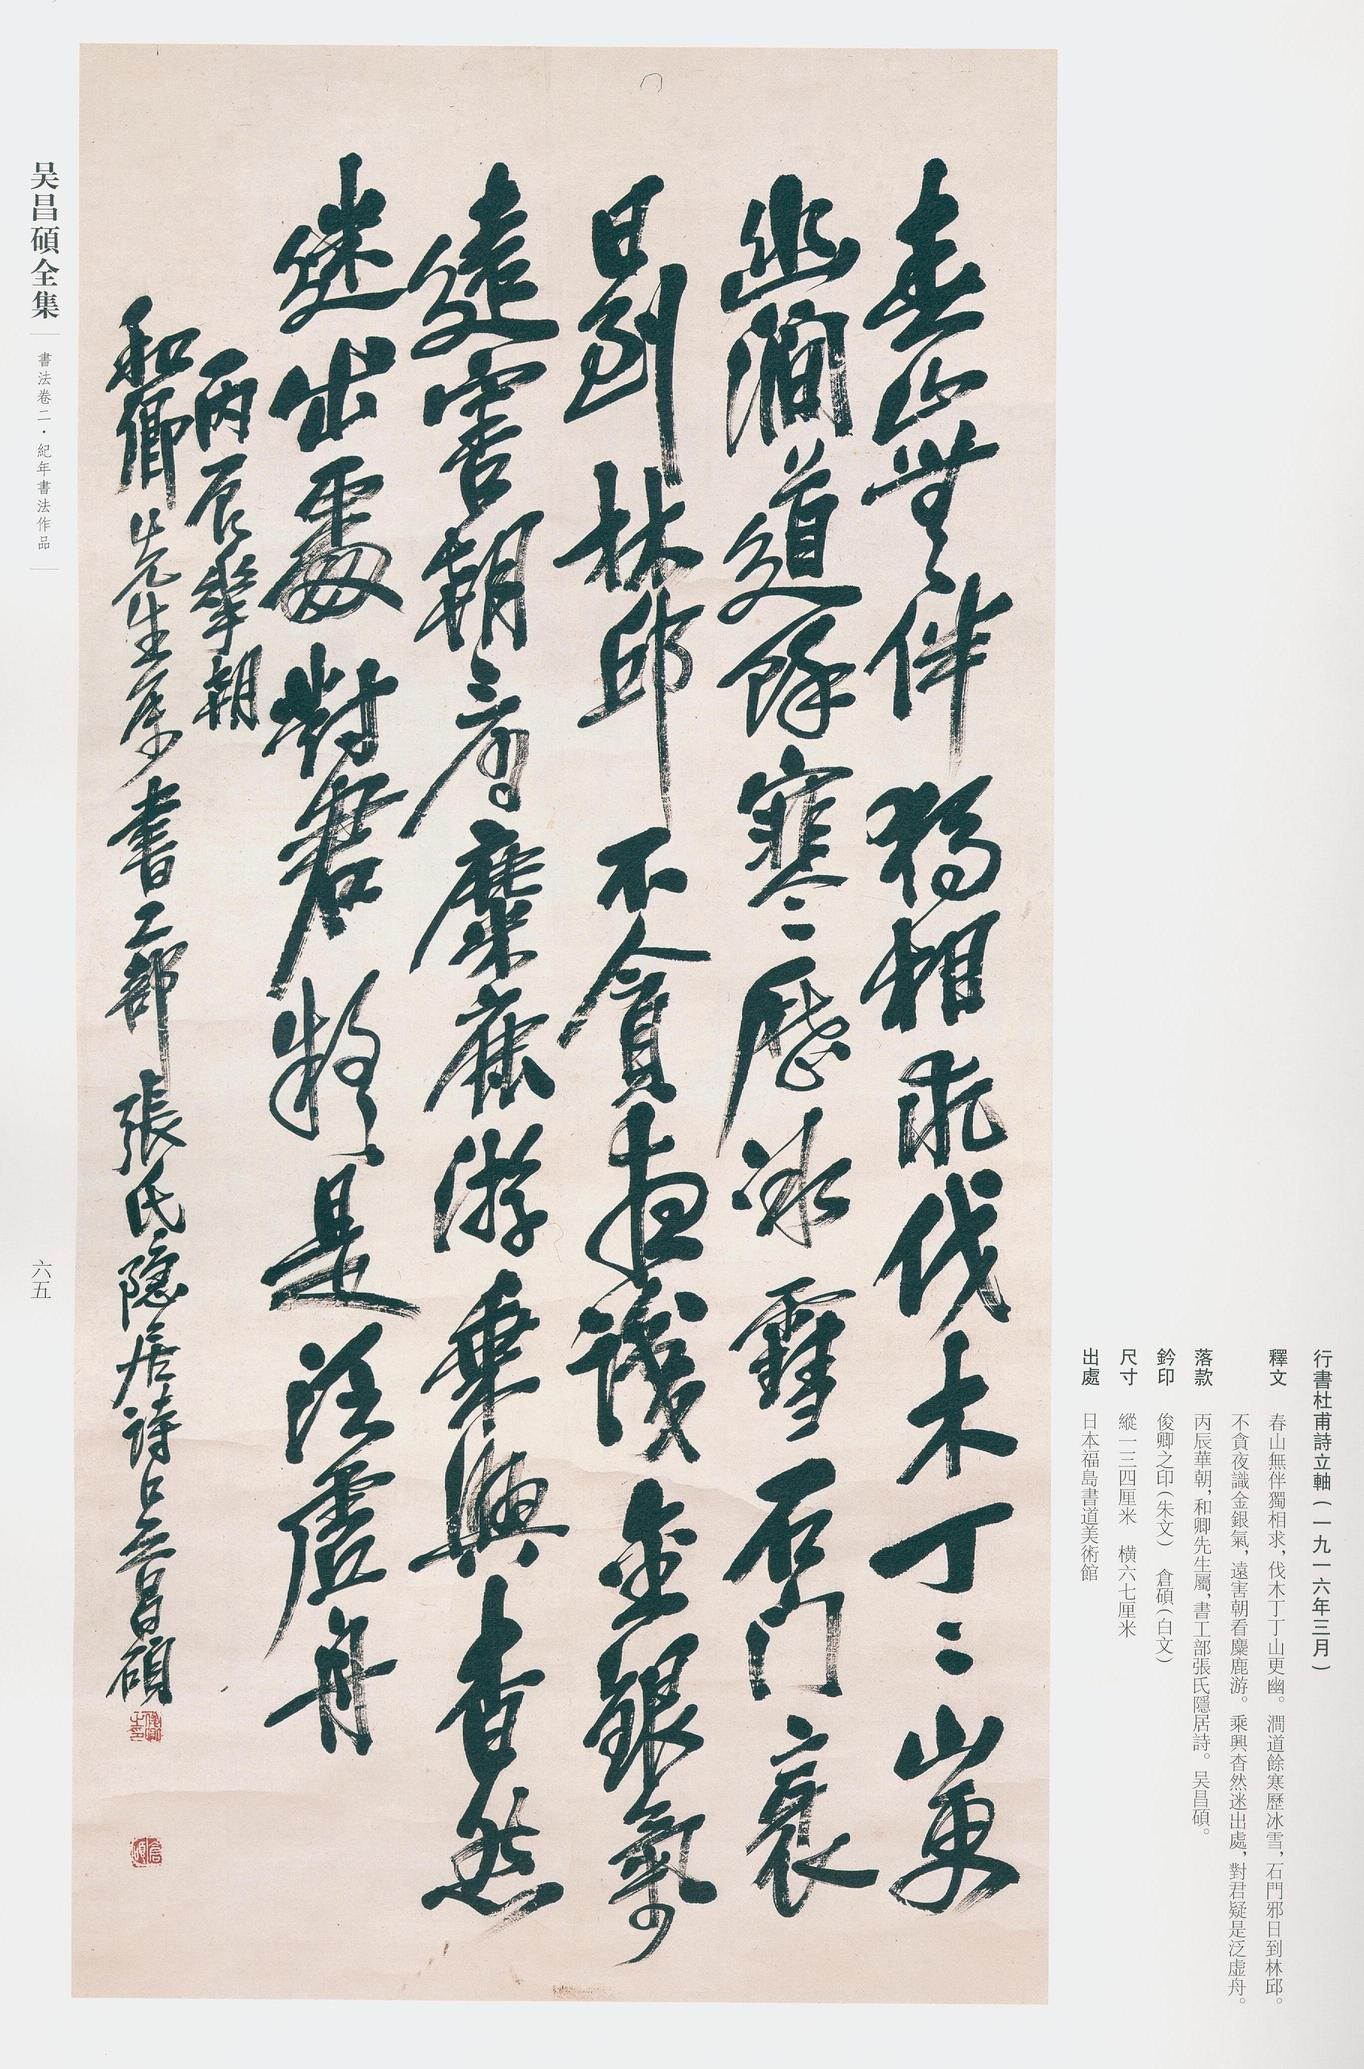 行書杜甫詩立軸(一九一六年三月)
釋文 春山無伴獨相求，伐木丁丁山更幽。澗道餘寒歷冰雪，石門邪日到林邱。
不貪夜識金銀氣，遠害朝看麋鹿游。乘興杳然迷出處，對君疑是泛虛舟。
落款 丙辰華朝，和卿先生屬，書工部張氏隱居詩。吴昌碩。
鈐印 俊卿之印(朱文) 倉碩(白文)
尺寸 縱一三四厘米 橫六七厘米
出處 日本福島書道美術館
春山無伴獨相求伐木丁〻山更
幽澗道餘寒歷冰雪石門衺
日到林邱不貪夜識金銀氣
遠害朝看麋鹿游乘興杳然
迷出處對君疑是泛虛舟
丙辰華朝
和卿先生属書工部張氏隱居詩吴昌碩
俊卿之印
倉碩
吴昌碩全集
書法卷二·紀年書法作品
六五